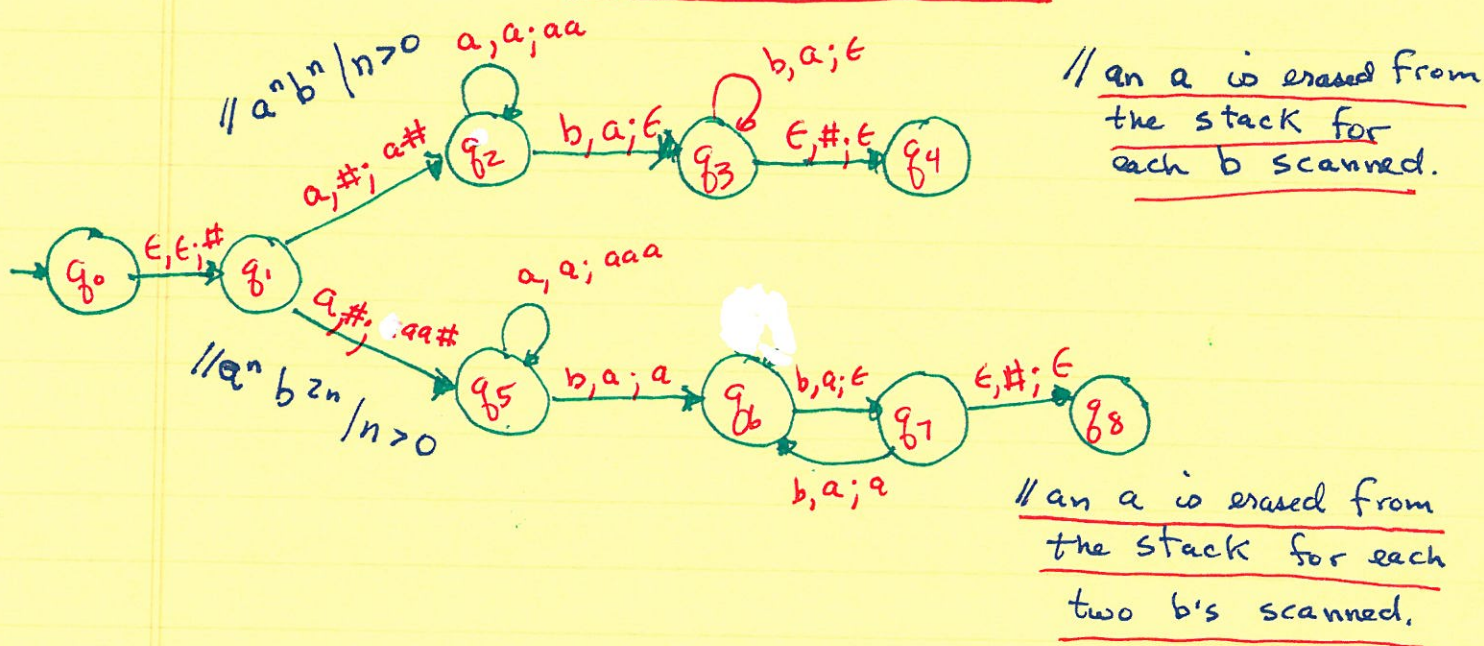 // aⁿbⁿ | n>0
a, a; aa
b, a; ϵ
// an a is erased from
the stack for
each b scanned.
a, #; a#
q2
b, a; ϵ
q3
ϵ, #; ϵ
q4
q0
ϵ, ϵ; #
q1
a, #; aa#
a, a; aaa
// aⁿ b²ⁿ / n>0
q5
b, a; a
q6
b, a; ϵ
q7
ϵ, #; ϵ
q8
b, a; a
// an a is erased from
the stack for each
two b's scanned.